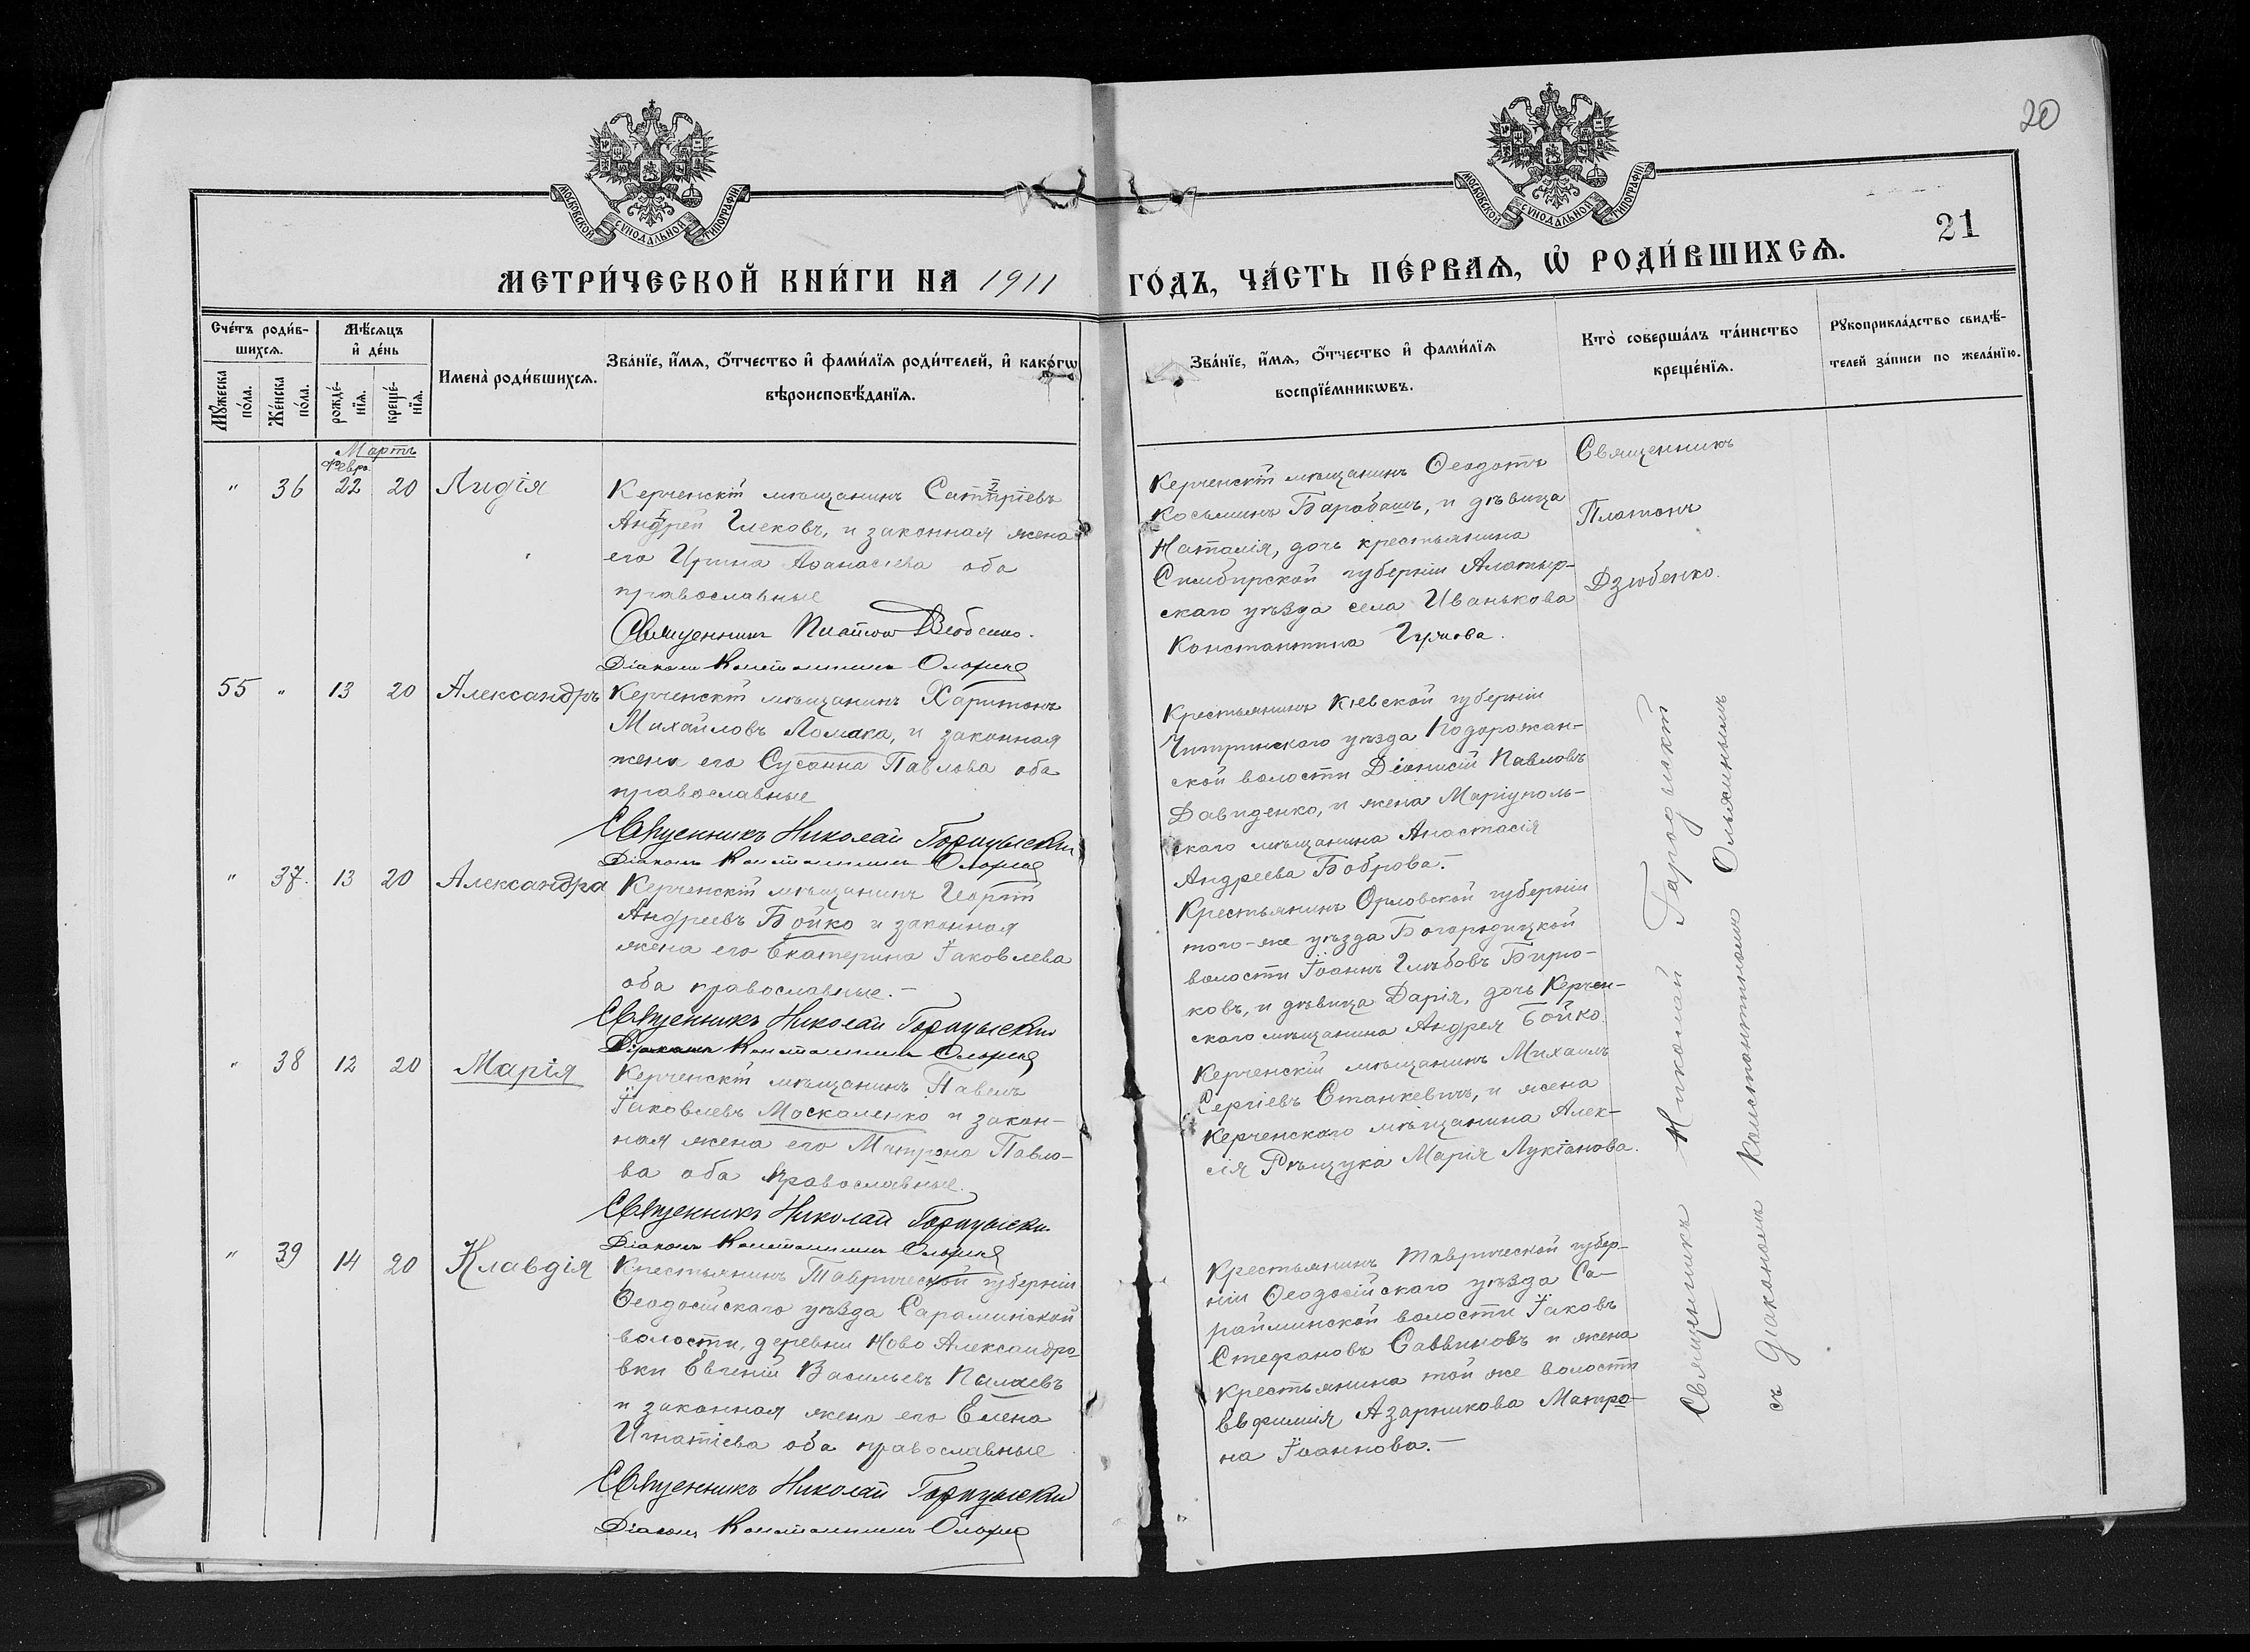 20
МОСКОВСКОЙ СѴНОДАЛЬНОЙ ТИПОГРАФІИ
МОСКОВСКОЙ СѴНОДАЛЬНОЙ ТИПОГРАФІИ
21
МЕТРИ́ЧЕСКОЙ КНИ́ГИ НА 1911 ГО́ДЪ, ЧА́СТЬ ПЕ́РВАѦ, Ѡ҆ РОДИ́ВШИХСѦ.
Сче́тъ роди́в-
шихсѧ.
Мꙋ́жеска
по́ла.
Же́нска
по́ла.
Мѣ́сѧцъ
и҆ де́нь
рожде́-
нїѧ.
креще́-
нїѧ.
Имена̀ роди́вшихсѧ.
Зва́нїе, и҆́мѧ, ѻ҆́тчество и҆ фами́лїѧ роди́телей, и҆ како́гѡ
вѣроисповѣ́данїѧ.
Зва́нїе, и҆́мѧ, ѻ҆́тчество и҆ фами́лїѧ
воспрїе́мникѡвъ.
Кто̀ соверша́лъ та́инство
креще́нїѧ.
Рꙋкоприкла́дство свидѣ́-
телей за́писи по жела́нїю.
Мартъ
Февр.
" 36 22 20 Лидія
Керченскій мѣщанинъ
Андрей Глековъ, и законная жена
его Ирина Аѳанасіева оба
православные
Священникъ Платонъ Дзюбенко.
Діаконъ Константинъ
Керченскій мѣщанинъ Ѳеодотъ
Косьминъ Барабашъ, и дѣвица
Наталія, дочь крестьянина
Симбирской губерніи Алатыр-
скаго уѣзда села Иванькова
Константина
Священникъ
Платонъ
Дзюбенко.
55 " 13 20 Александръ
Керченскій мѣщанинъ Харитонъ
Михайловъ Ломака, и законная
жена его Сусанна Павлова оба
православные
Священникъ Николай
Діаконъ Константинъ
Крестьянинъ Кіевской губерніи
Чигринскаго уѣзда Подорожан-
ской волости Діонисій Павловъ
Давиденко, и жена Маріуполь-
скаго мѣщанина Анастасія
Андреева Боброва.-
" 37. 13 20 Александра
Керченскій мѣщанинъ Георгій
Андреевъ Бойко и законная
жена его Екатерина Іаковлева
оба православные.-
Священникъ Николай
Діаконъ Константинъ
Крестьянинъ Орловской губерніи
того-же уѣзда Богородицкой
волости Іоаннъ Глѣбовъ Бирю-
ковъ, и дѣвица Дарія, дочь Керчен-
скаго мѣщанина Андрея Бойко.
" 38 12 20 Марія
Керченскій мѣщанинъ Павелъ
Іаковлевъ Москаленко и закон-
ная жена его Матрона Павло-
ва оба православные.
Священникъ Николай
Діаконъ Константинъ
Керченскій мѣщанинъ Михаилъ
Сергіевъ Станкевичъ, и жена
Керченскаго мѣщанина Алек-
сія Рѣщука Марія Лукіанова.
" 39 14 20 Клавдія
Крестьянинъ Таврической губерніи
Ѳеодосійскаго уѣзда Сараминской
волости, деревни Ново Александро-
вки Евгеній Васильевъ Палаевъ
и законная жена его Елена
Игнатіева оба православные
Священникъ Николай
Діаконъ Константинъ
Крестьянинъ Таврической губер-
ніи Ѳеодосійскаго уѣзда Са-
райминской волости Іаковъ
Стефановъ Саввиновъ и жена
крестьянина той же волости
Азарникова Матро-
на Іоаннова.-
Священникъ Николай
съ діакономъ Константиномъ